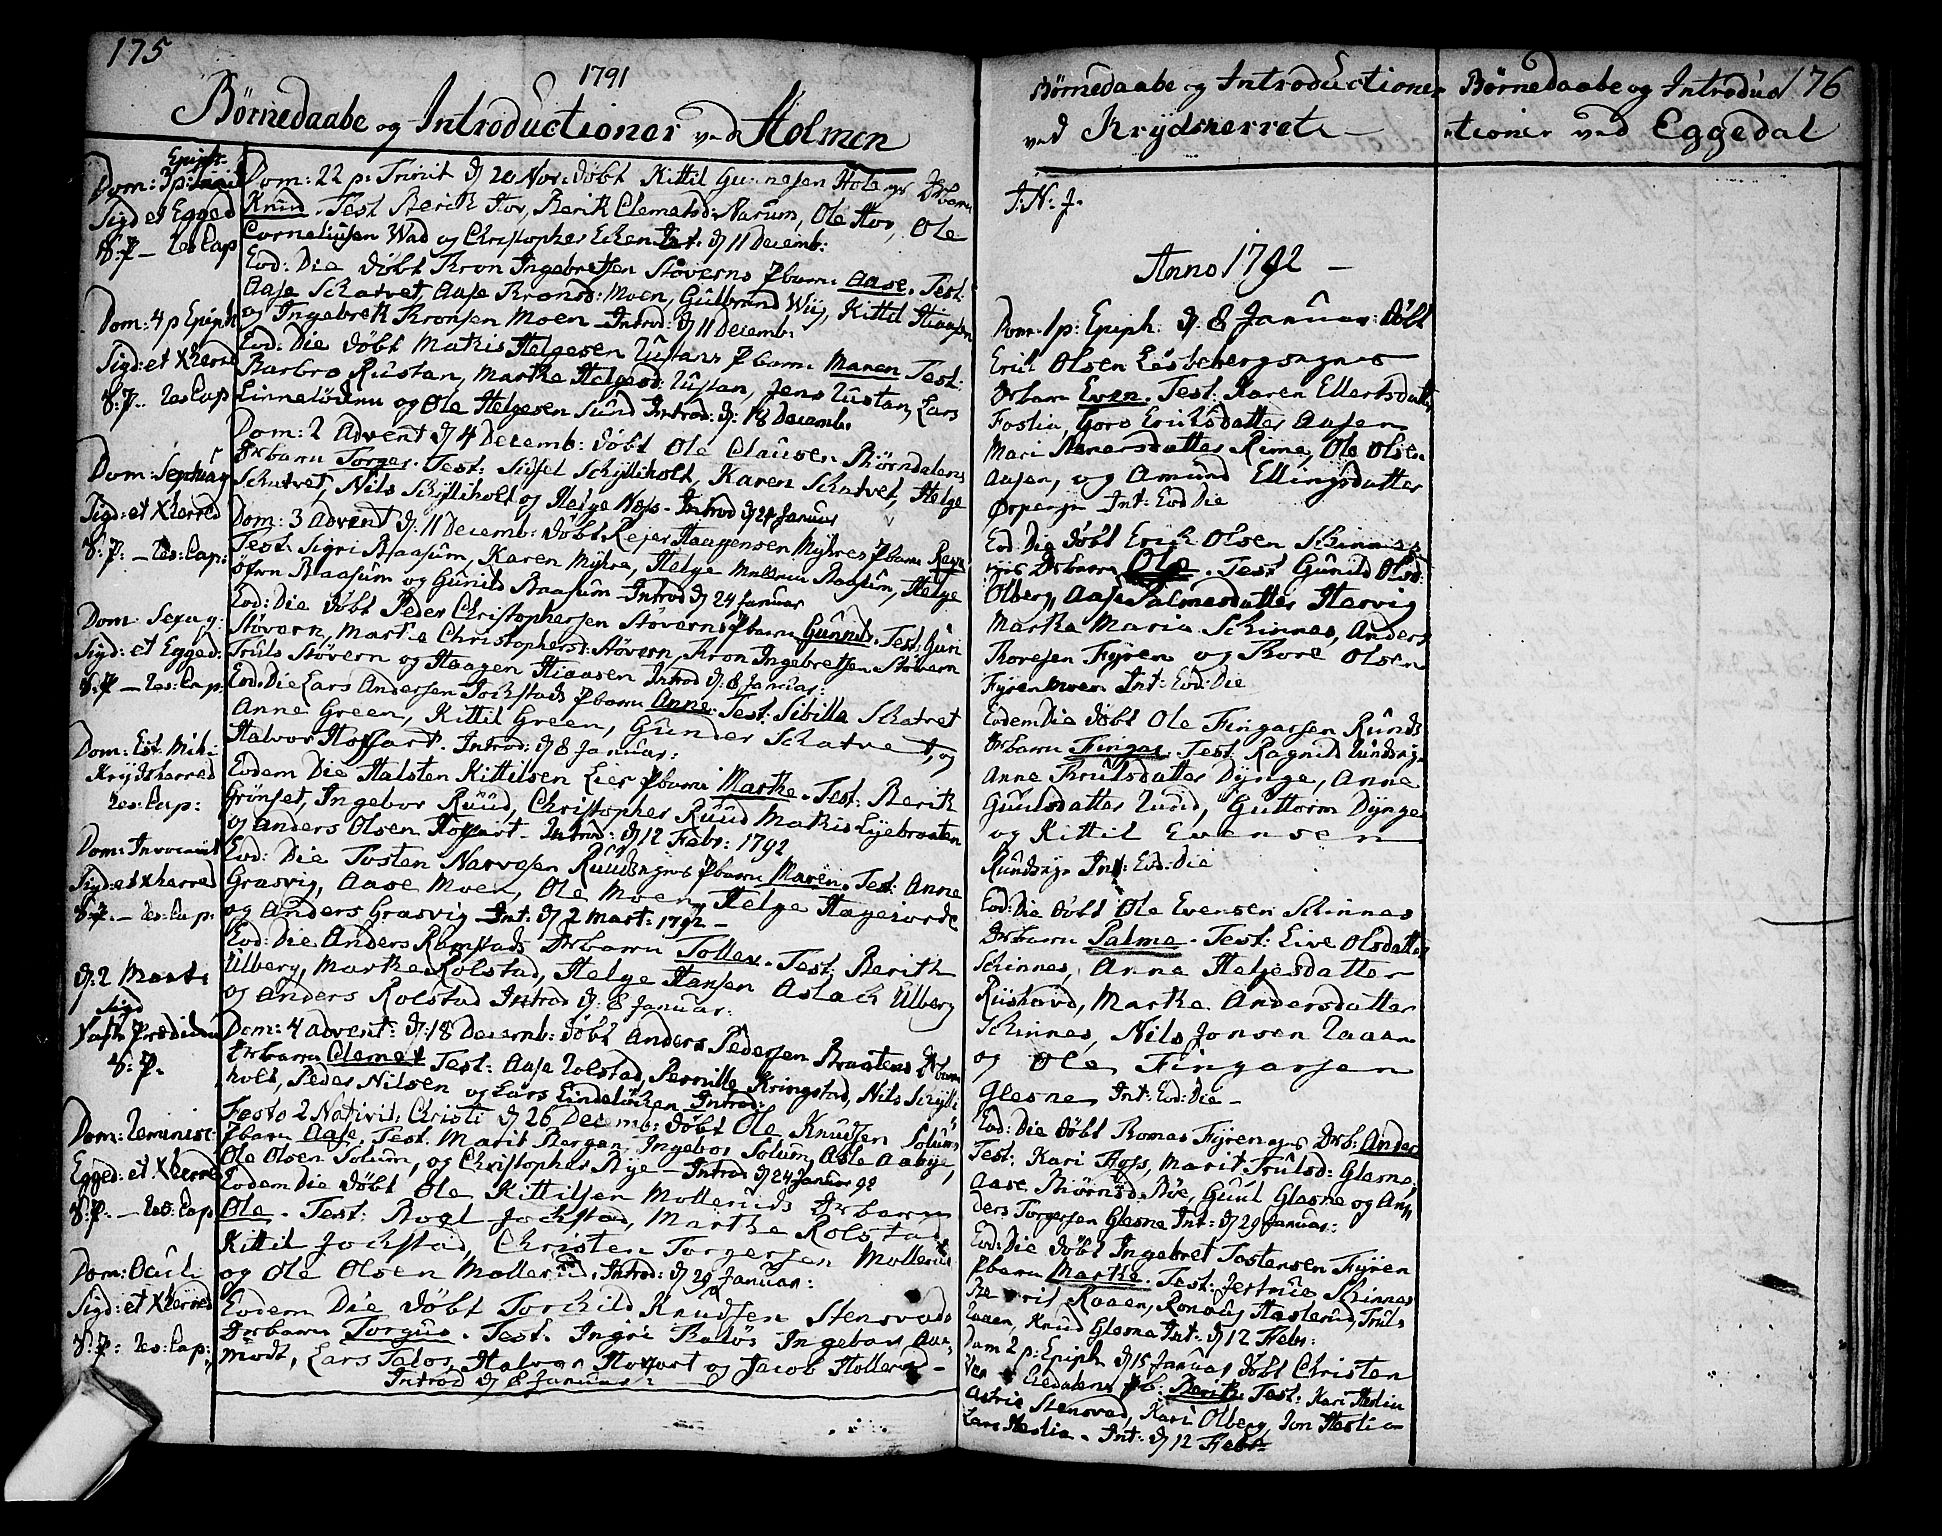 175
1791
Børnedaabe og Introductioner ved Holmen
Epiph.
Dom: 3 p:
Sigd et Egged
S:P – Res Cap
Dom: 4 p Epiph
Sigd: et Xherred
S:P. Res Cap
Dom: Septuag
Sigd: et Xherred
S:P: – Res: Cap:
Dom: Sexag:
Sigd: et Egged:
S:P – Res: Cap:
Dom: Est. Mih:
Krydsherred
Res: Cap:
Dom: Invocavit
Sigd: et Xherred
S:P. – Res: Cap.
d: 2 Mart:
Sigd
S:P.
Dom: Reminisc:
Egged: et Xherred
S:P. – Res: Cap
Dom: Oculi
Sigd: et Xherred
S:P: Res: Cap:
Dom: 22 p: Trinit d 20 Nov: døbt Kittil Gunnesen Hole Drbarn
Knud. Test Berit Hov, Berit Clemetsd: Narum, Ole Hov, Ole
Corneliusen Wad og Christopher Eken Int: d 11 Decemb:
Eod: Die døbt Tron Ingebretsen Støverns Pbarn Aase. Test:
Aase Schatvet, Aase Tronsd: Moen, Gulbrand Wiig, Kittil Hiaasen
og Ingebret Tronsen Moen – Introd: d 11 Decemb:
Eod: Die døbt Mathis Helgesen Rustans Pbarn Maren Test:
Barbro Rustan, Marthe Helgesd: Rustan, Jens Rustan, Lars
Linneløkken og Ole Helgesen Sund Introd: d: 18 Decemb:
Dom: 2 Advent d 4 Decemb: døbt Ole Clausen Biørndalens
Drbarn Torger. Test: Sidsel Schylliholt, Karen Schatvet, Helge
Schatvet, Nils Schylliholt og Helge Hoss – Introd d 24 Januar
Dom: 3 Advent d: 11 Decemb: døbt Rejer Haagensen Myhres Pbarn
Test. Sigri Braasum, Karen Myhre, Helge Braasum, Helge
Øfern Braasum og Gunild Braasum – Introd d 24 Januar
Eod: Die døbt Peder Christophersen Støverns Pbarn Gunnil. Test: Guri
Støvern, Marthe Christophersd: Støvern, Tron Ingebretsen Støvern
Truls Støvern og Haagen Hiaasen Introd d: 8 Januar:
Eod: Die Lars Andersen Jockstads Pbarn Anne. Test: Sibilla Schatvet
Anne Green, Kittil Green, Gunder Schatvet, og
Halvor Hoffart. Introd: d 8 Januar:
Eodem Die Halsten Kittilsen Lier Pbarn Marthe. Test: Berit
Grønset, Ingebor Ruud, Christopher Ruud Mathis Lyebraaten
og Anders Olsen Hoffart – Introd: d 12 Febr: 1792
Eod: Die Tosten Narvesen Ruudsejes Pbarn Maren. Test: Anne
Grasvig, Aase Moen, Ole Moen, Helge Hagejorde
og Anders Grasvig – Int: d 2 Mart: 1792 –
Eod: Die Anders Ramstads Drbarn Tollev. Test: Berith
Ulberg, Marthe Rolstad, Helge Hansen Aslach Ulberg
og Anders Rolstad Introd d: 8 Januar:
Dom: 4 Advent: d: 18 Decemb: døbt Anders Pedersen Braatens Drbarn
Drbarn Clemet Test: Aase Rolstad, Pernille Kringstad, Nils Schylli
holt, Peder Nilsen og Lars Lindeløken Introd:
Festo 2 Nativit: Christi d 26 Decemb: døbt Ole Knudsen Solums
Pbarn Aase. Test. Marit Bergan, Ingebor Solum, Asle Aabye,
Ole Olsen Solum, og Christopher Rye – Introd d 24 Januar 92
Eodem Die døbt Ole Kittilsen Molleruds Drbarn
Ole. Test: Bogl Jockstad, Marthe Rolstad
Kittil Jockstad, Christen Torgersen Mollerud
og Ole Olsen Mollerud. Introd: d 29 Januar:
Eodem Die døbt Torchild Knudsen Stensvads
Drbarn Torgus. Test. Ingri Raløs Ingebor Aa
modt, Lars Taløs, Halvor Hoffart og Jacob Hollerud –
Introd d 8 Januar:
Børnedaabe og Introductioner
ved Krydsherret –
J:N:J.
Anno 1792 –
Dom: 1 p: Epiph: d: 8 Januar: døbt
Erik Olsen Løsbebergsagnes
Drbarn Even. Test: Karen Ellertsdatter
Foslia, Goro Eriksdatter Aasen
Mari Rime, Ole Olsen
Aasen, og Amund Ellingsdatter
Ørpen – Int: Eod Die
Eod: Die døbt Erich Olsen Schinnes
ejes Drbarn Ole. Test Gunild Olsd:
Olberg, Aase Palmesdatter Hervig
Marthe Maria Schinnes, Anders
Thoresen Fyren og Thore Olsen
Fyrenmoen Int: Eod: Die
Eodem Die døbt Ole Fingarsen Runds
Drbarn Fingar. Test: Ragnild Rundseje
Anne Trulsdatter Dynge, Anne
Guulsdatter Rund, Guttorm Dynge
og Kittil Evensen
Rundseje Int: Eod: Die
Eod: Die døbt Ole Evensen Schinnes
Drbarn Palme. Test: Live Olsdatter
Schinnes, Anne Helgesdatter
Riishovd, Marthe Andersdatter
Schinnes, Nils Jonsen Raaen
og Ole Fingarsen
Glesne Int: Eod: Die –
Eod: Die døbt Thomas Fyren ejes Drb: Anders
Test: Kari Hoss, Marit Trulsd: Glesne,
Aase Biørnsd: Bøe, Guul Glesne og An
ders Torgersen Glesne Int: d 29 Januar:
Eod: Die døbt Ingebret Tostensen Fyren
Pbarn Marthe. Test: Jertrue Schinnes
Raaen, Ronnaug Haslerud, Truls
Raaen, Knud Glesne Int: d 12 Febr:
Dom 2 p: Epiph d 15 Januar døbt Christen
Pb: Berith Test: Kari Heslia
Astrie Stensvad, Kari Olberg, Jon Heslia
Lars Heslia. Int: d 12 Febr:
Børnedaabe og Introduc 176
tioner ved Eggedal